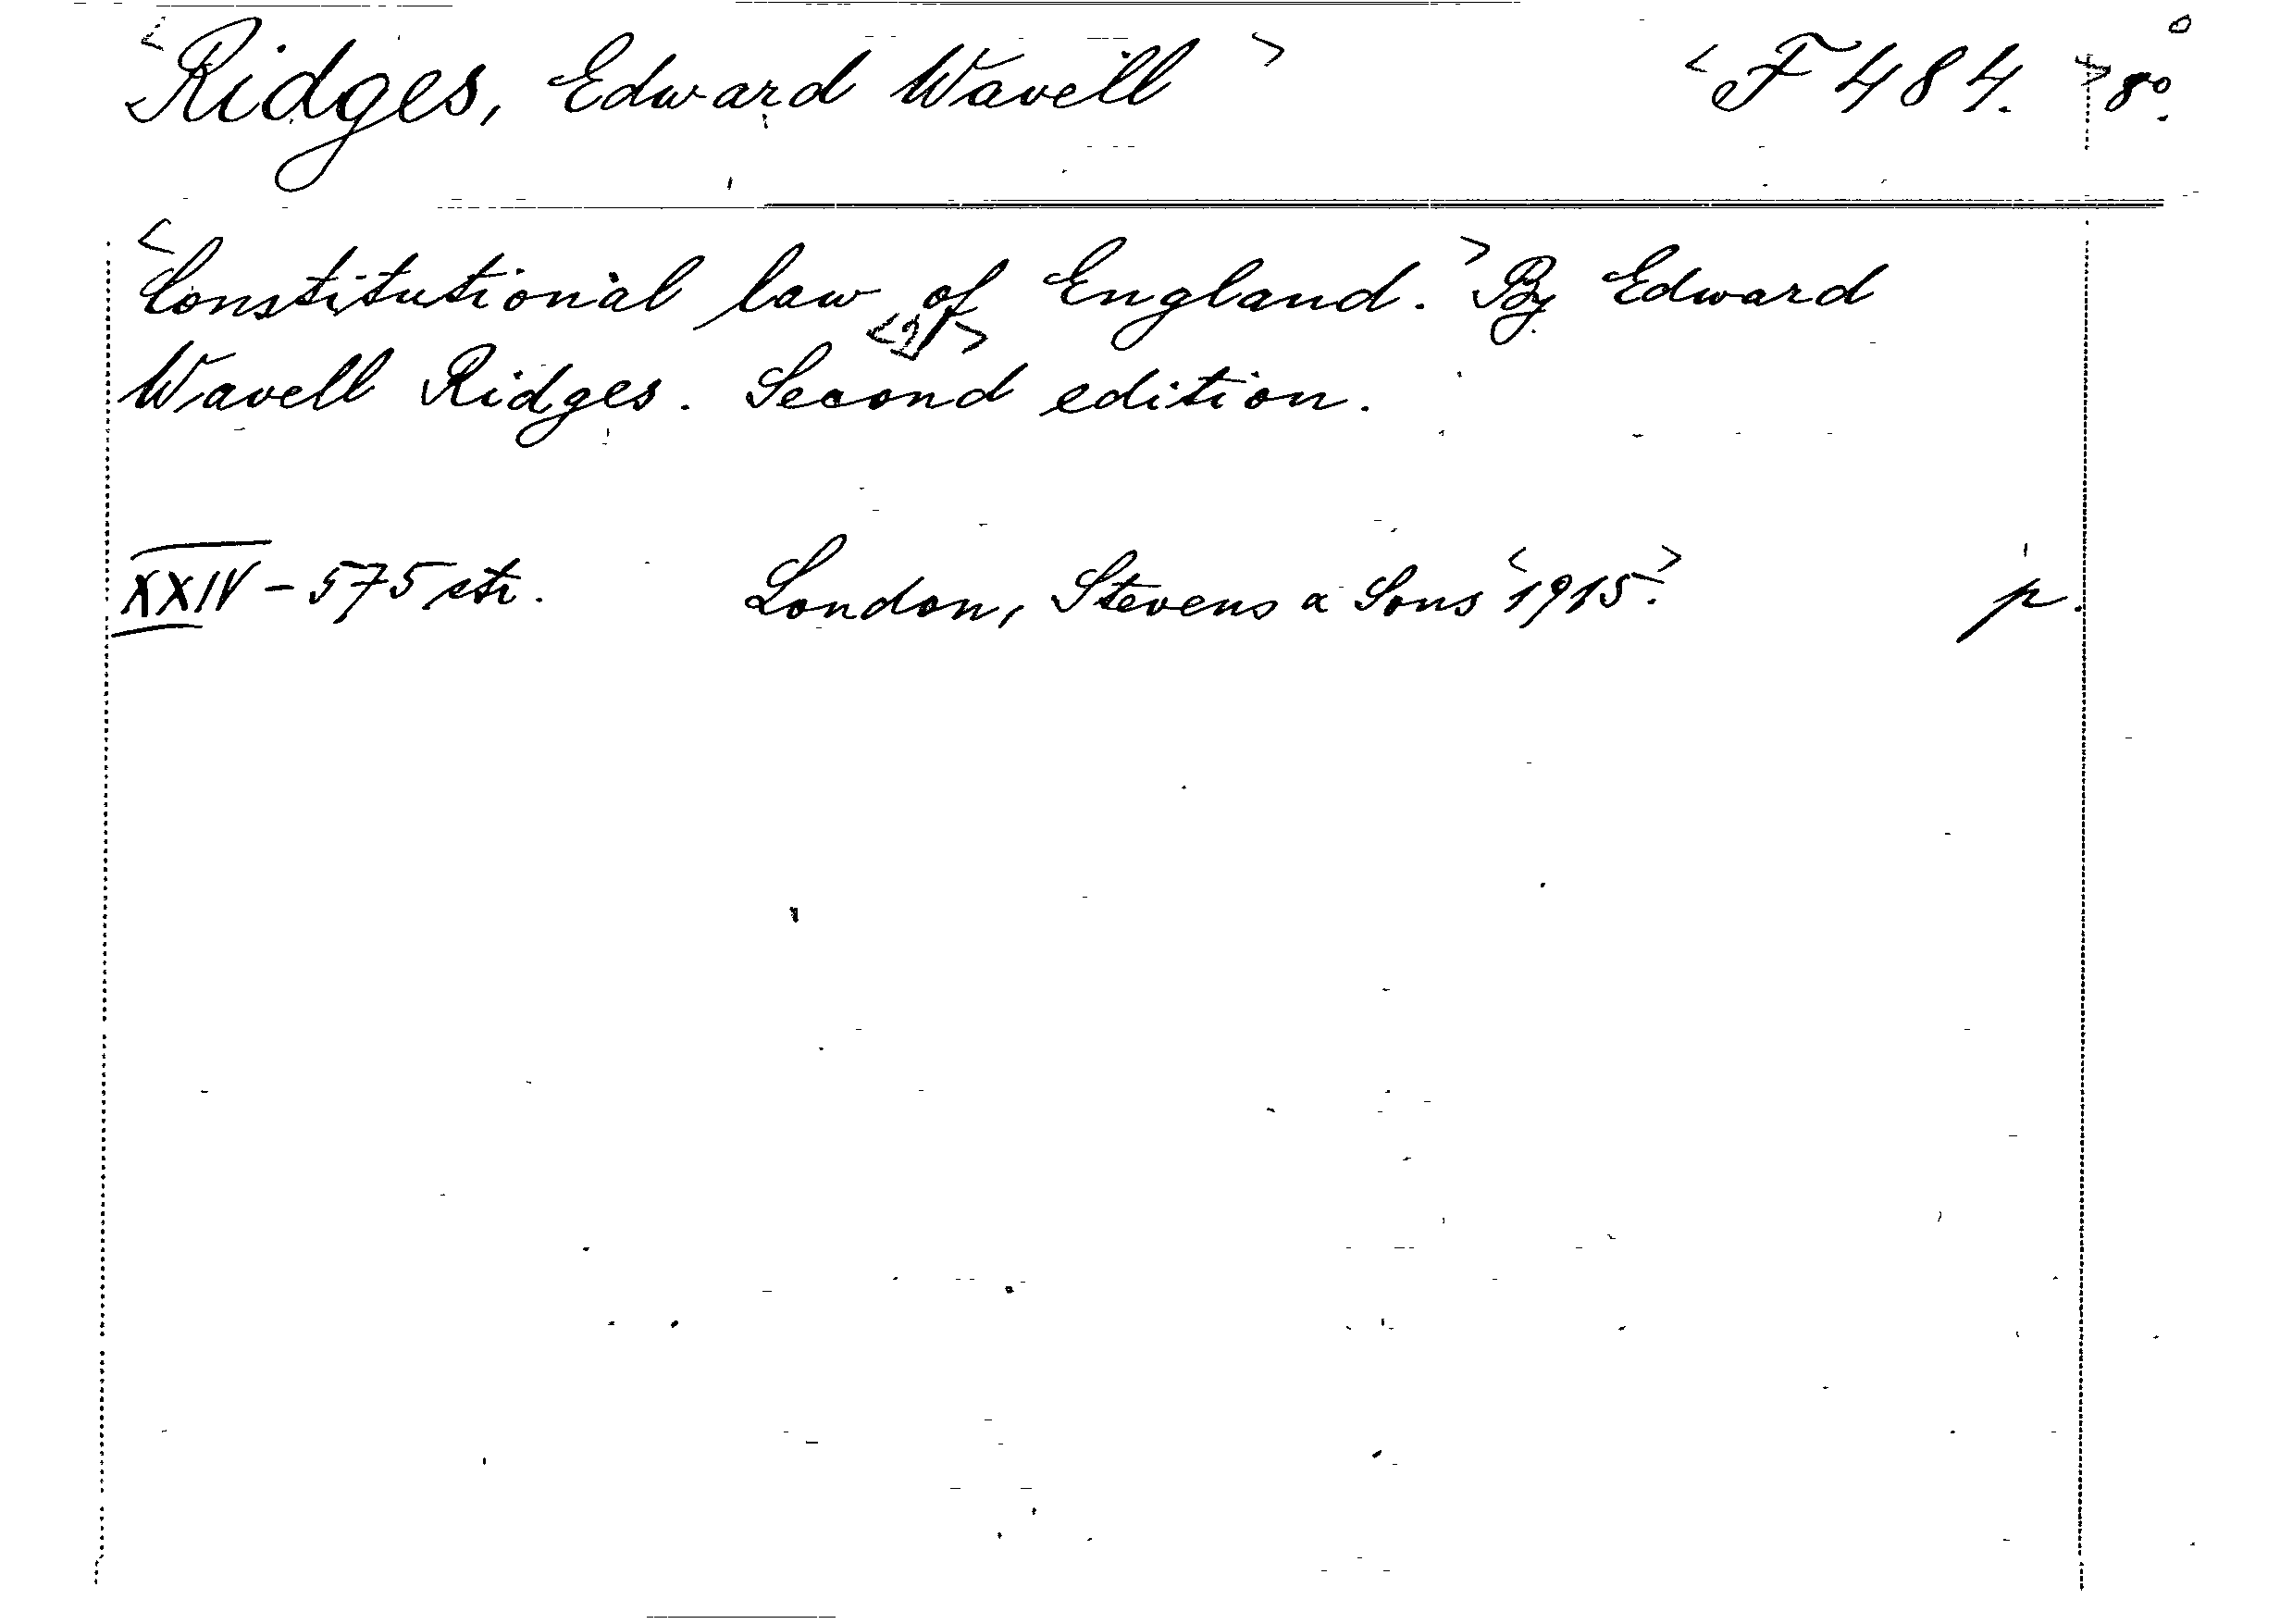 <Ridges, Edward Wavell> <F 484.> 8º.
<Constitutional law of England.> By Edward
<2>
Wavell Ridges. Second edition.
XXIV - 575 str. London, Stevens & Sons <1915.> p.